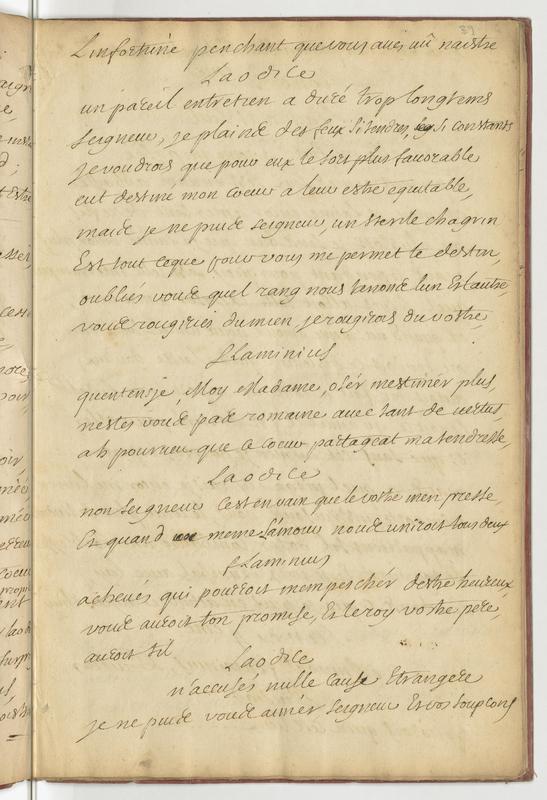 39
L'infortuné penchant que vous avés vû naistre
Laodice
un pareil entretien a duré trop longtems
seigneur, je plaind des feux si tendres, si constants
je voudrois que pour eux le sort plus favorable
eut destiné mon coeur a leur estre equitable,
maid je ne puid seigneur, un sterile chagrin
Est tout ceque pour vous me permet le destin,
oubliés voud quel rang nous tenond lun Et lautre,
voud rougiriés dumien, je rougirois du votre
fLaminius
quentensje, Moy Madame, osér mestimér plus,
nestes voud pad romaine avec tant de vertus,
ah pourveu que ce coeur partageat ma tendresse,
Laodice
non seigneur c'est en vain que le votre men presse,
Et quand meme L'amour noud uniroit tous deux
fLaminius
achevés qui pourroit mempeschér destre heureux,
voud auroit ton promise, Et le roy vostre pere,
auroit til
Laodice
n'accusés nulle cause Etrangere
je ne puid voud aimér seigneur Et vos soupcons